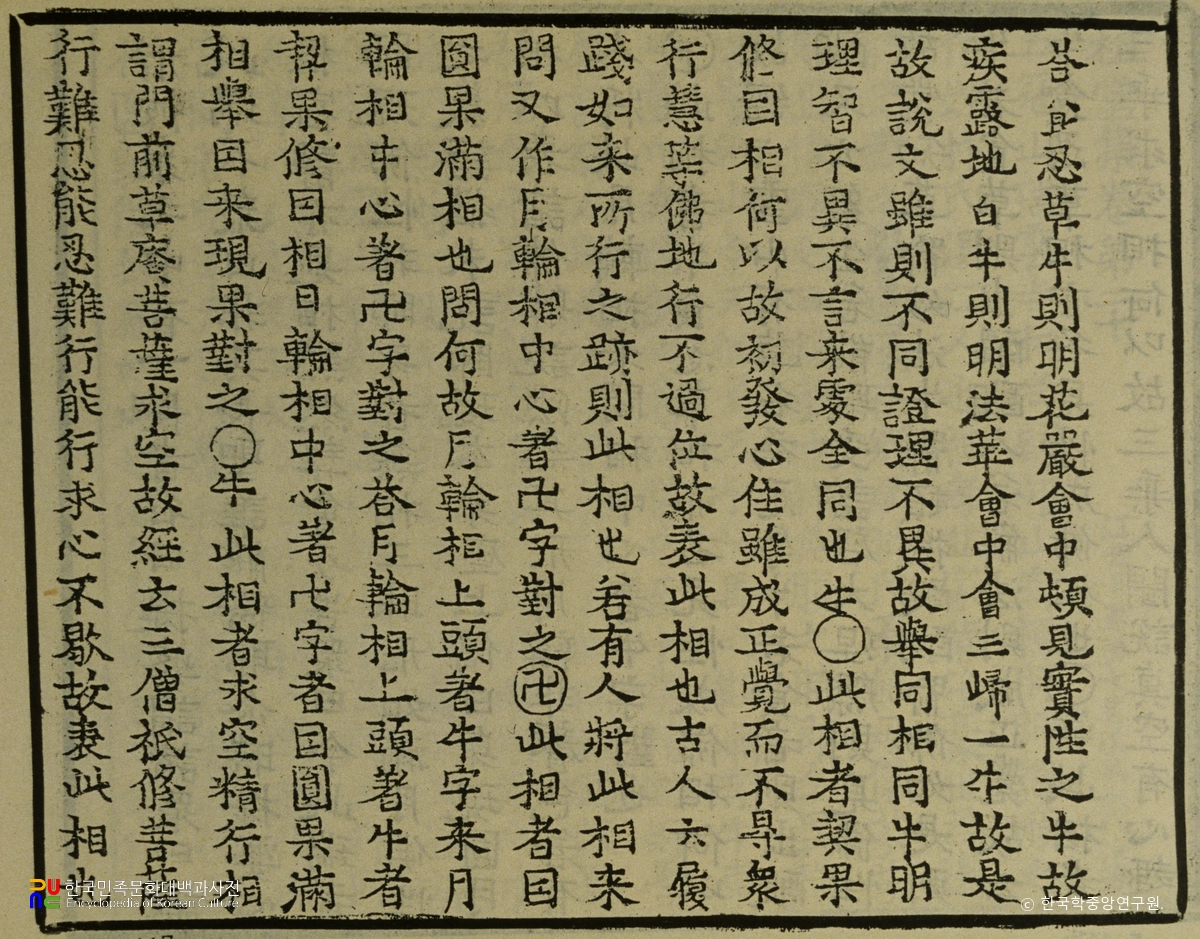 答食忍草牛則明花嚴會中頓見實性之牛故
疾露地白牛則明法華會中會三歸一牛故是
故說文雖則不同證理不異故擧同相同牛明
理智不異不言来處全同也牛○此相者契果
修因相何以故初發心住雖成正覺而不㝵衆
行慧等佛地行不過位故表此相也古人云履
踐如来所行之跡則此相也若有人將此相来
問又作月輪相中心著卍字對之卍此相者因
圓果滿相也問何故月輪相上頭著牛字来月
輪相中心著卍字對之荅月輪相上頭著牛者
契果修因相日輪相中心著卍字者因圓果滿
相擧因来現果對之○牛此相者求空精行相
謂門前草菴菩薩求空故經云三僧祇修菩薩
行難忍能忍難行能行求心不歇故表此相也
한국민족문화대백과사전
Encyclopedia of Korean Culture
© 한국학중앙연구원